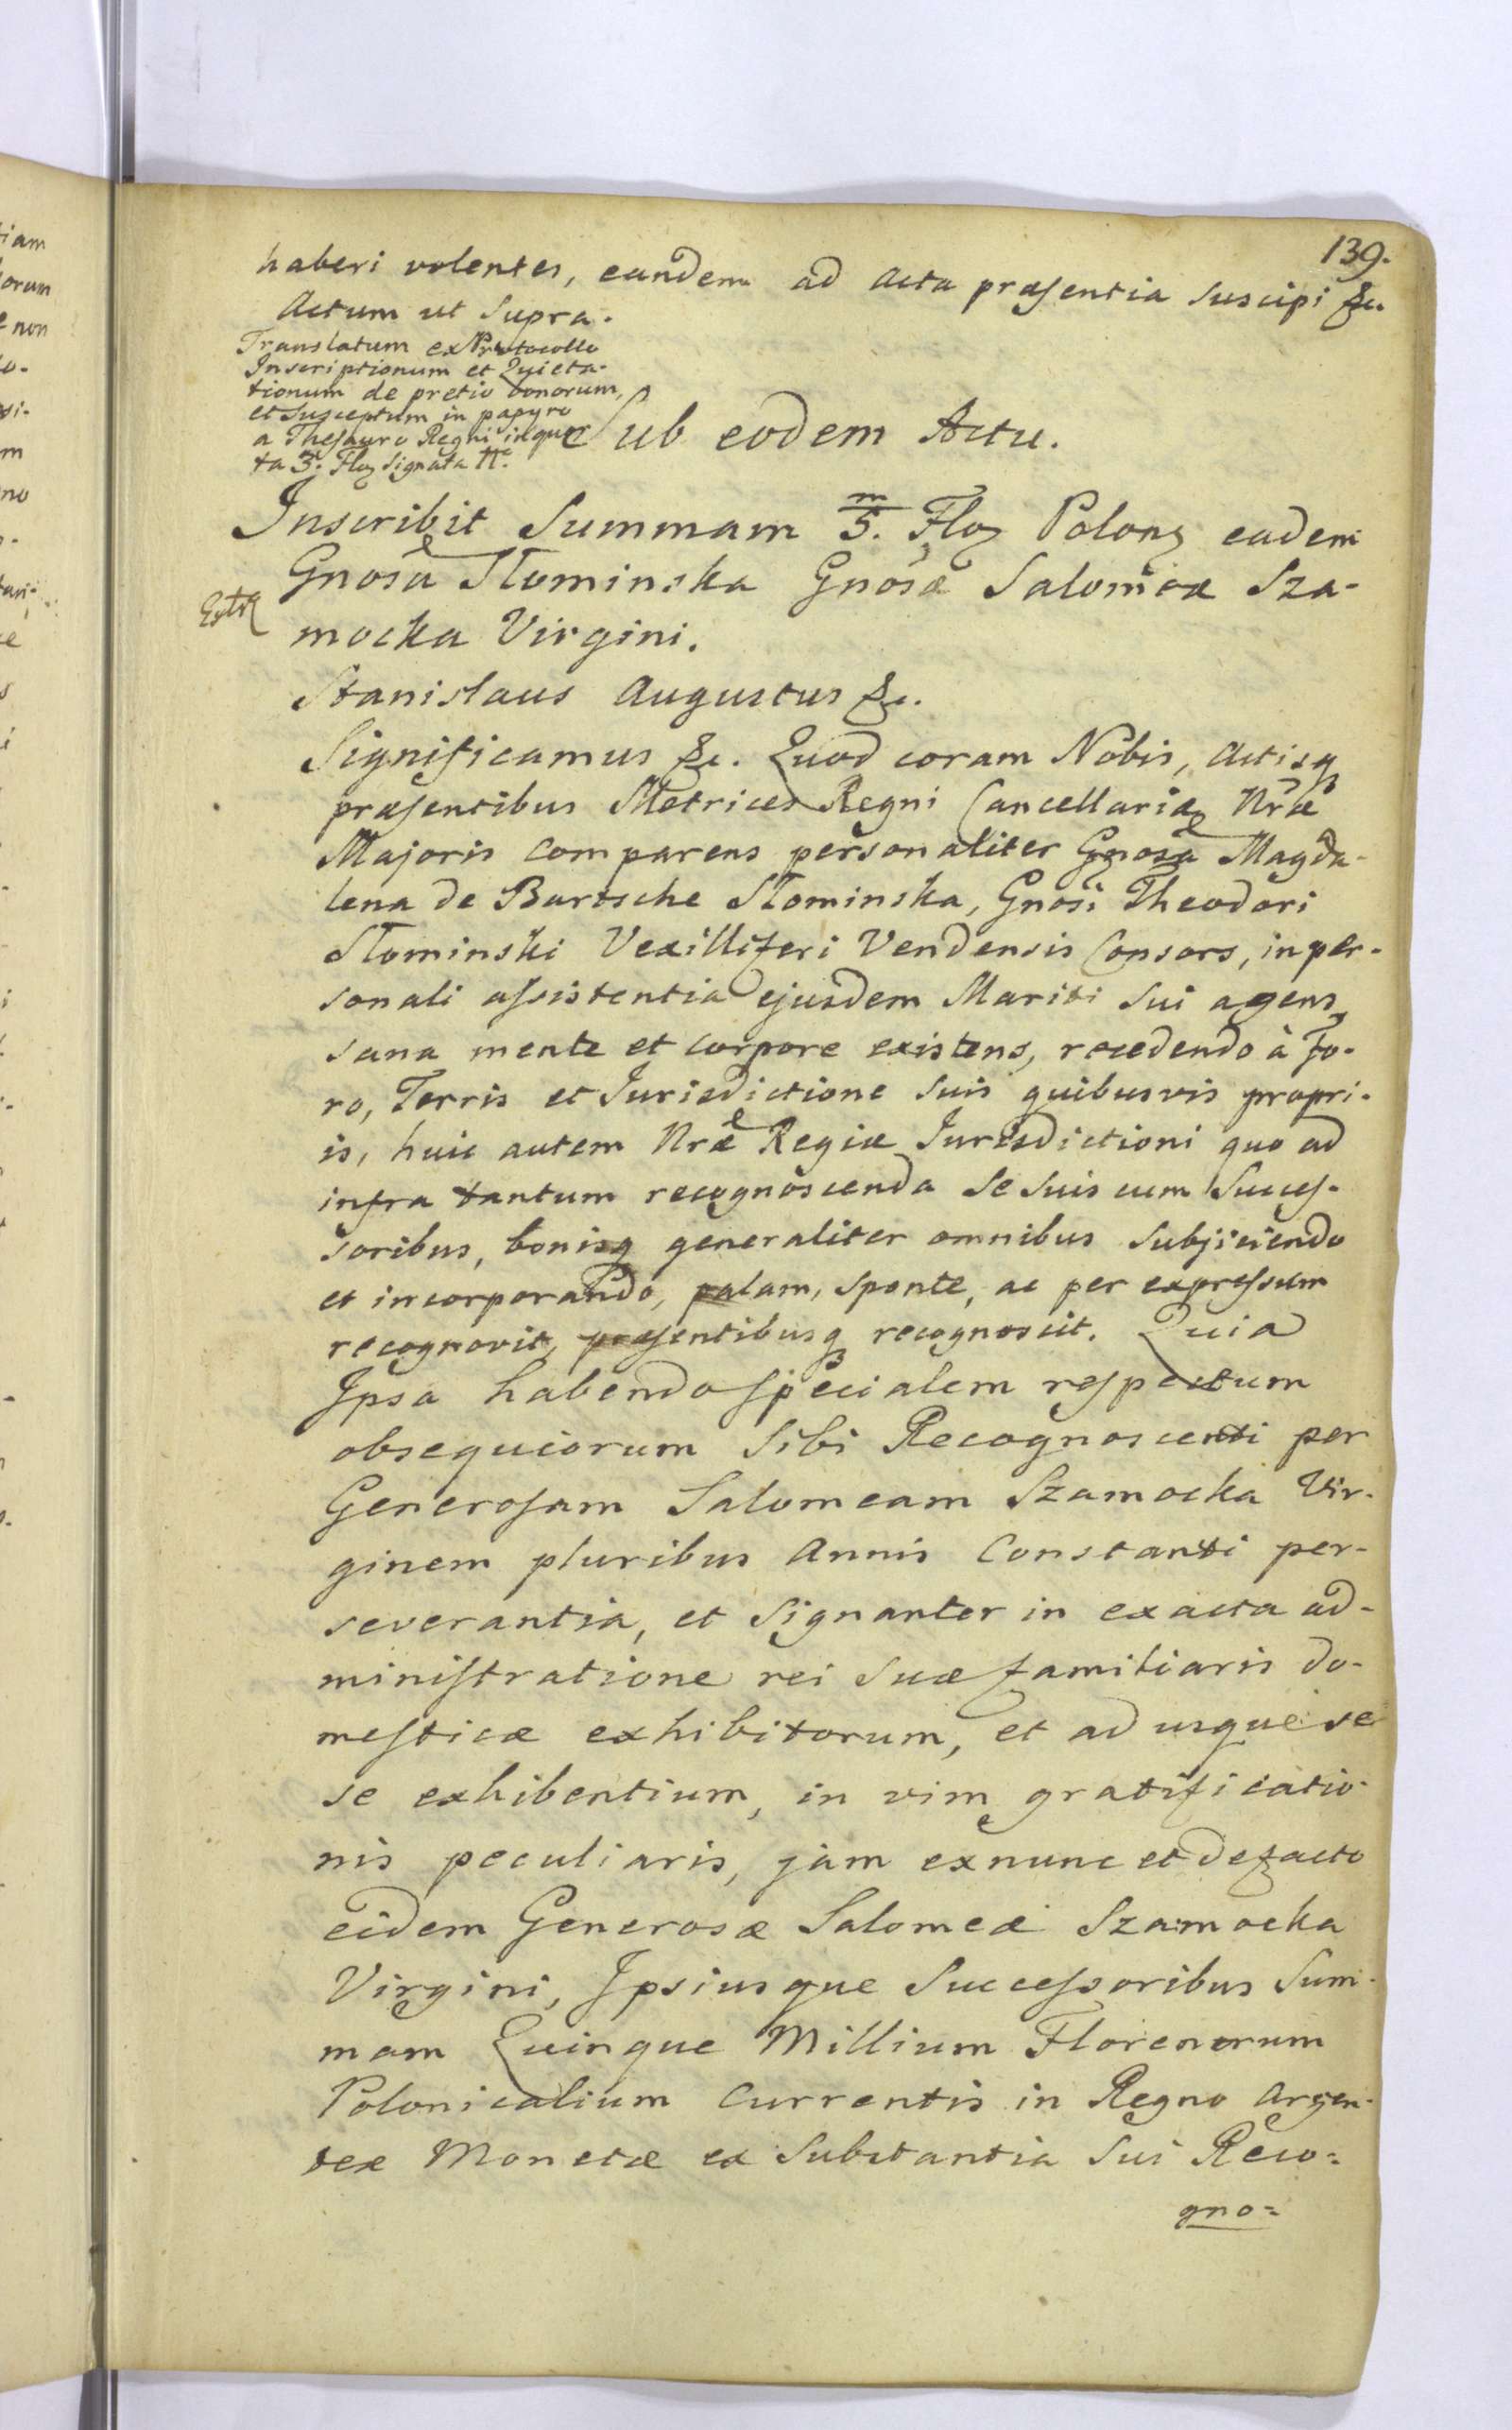 139.
haberi volentes, eandem ad Acta præsentia suscipi &c.
Actum ut Supra.
Translatum ex Protocollo
Inscriptionum et Quieta-
tionum de pretio bonorum,
et susceptum in papyro
a Thesauro Regni
ta 3. Flor signata
Sub eodem Actu.
Inscribit Summam 5.m Flor Polon eadem
Gnosa Słominska Gnosæ Salomeæ Sza-
mocka Virgini.
Stanislaus Augustus &c.
Significamus &c. Quod coram Nobis, Actisq
præsentibus Metrices Regni Cancellariæ Nræ
Majoris Comparens personaliter Gnosa Magda-
lena de Bartsche Słominska, Gnosi Theodori
Słominski Vexilliferi Vendensis Consors, in per-
sonali assistentia ejusdem Mariti Sui agens,
sana mente et corpore existens, recedendo à Fo-
ro, Terris et Jurisdictione suis quibusvis propri-
is, huic autem Nræ Regiæ Jurisdictioni quo ad
infra tantum recognoscenda se suis cum Succes-
soribus, bonisq generaliter omnibus Subjiciendo
et incorporando, palam, sponte, ac per expressum
recognovit, præsentibusq recognoscit. Quia
Ipsa habendo specialem respectum
obsequiorum Sibi Recognoscenti per
Generosam Salomeam Szamocka Vir-
ginem pluribus Annis Constanti per-
severantia, et Signanter in exacta ad-
ministratione rei suæ familiaris do-
mesticæ exhibitorum, et ad usque se
se exhibentium, in vim gratificatio-
nis peculiaris, jam exnunc et defacto
eidem Generosæ Salomeæ Szamocka
Virgini, Ipsiusque Successoribus Sum-
mam Quinque Millium Florenorum
Polonicalium Currentis in Regno Argen-
teæ Monetæ ex Substantia Sui Reco=
gno=